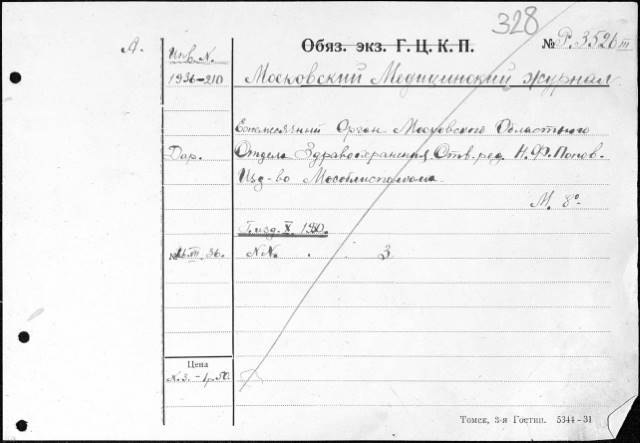 328
А.
Обяз. экз. Г. Ц. К. П.
№ Р. 3526 III
Инв. N.
1936-210
Московский Медицинский журнал
Ежемесячный Орган Московского Областного
Дар.
Отдела Здравоохранения. Отв. ред. Н. Ф. Попов.
Изд-во Мособлисполкома.
М. 8°
Г. изд. X. 1930.
XII. 36.
NN. . 3
Цена
N. 3. - 1 р. 50.
Томск, 3-я Гостип. 5344-31